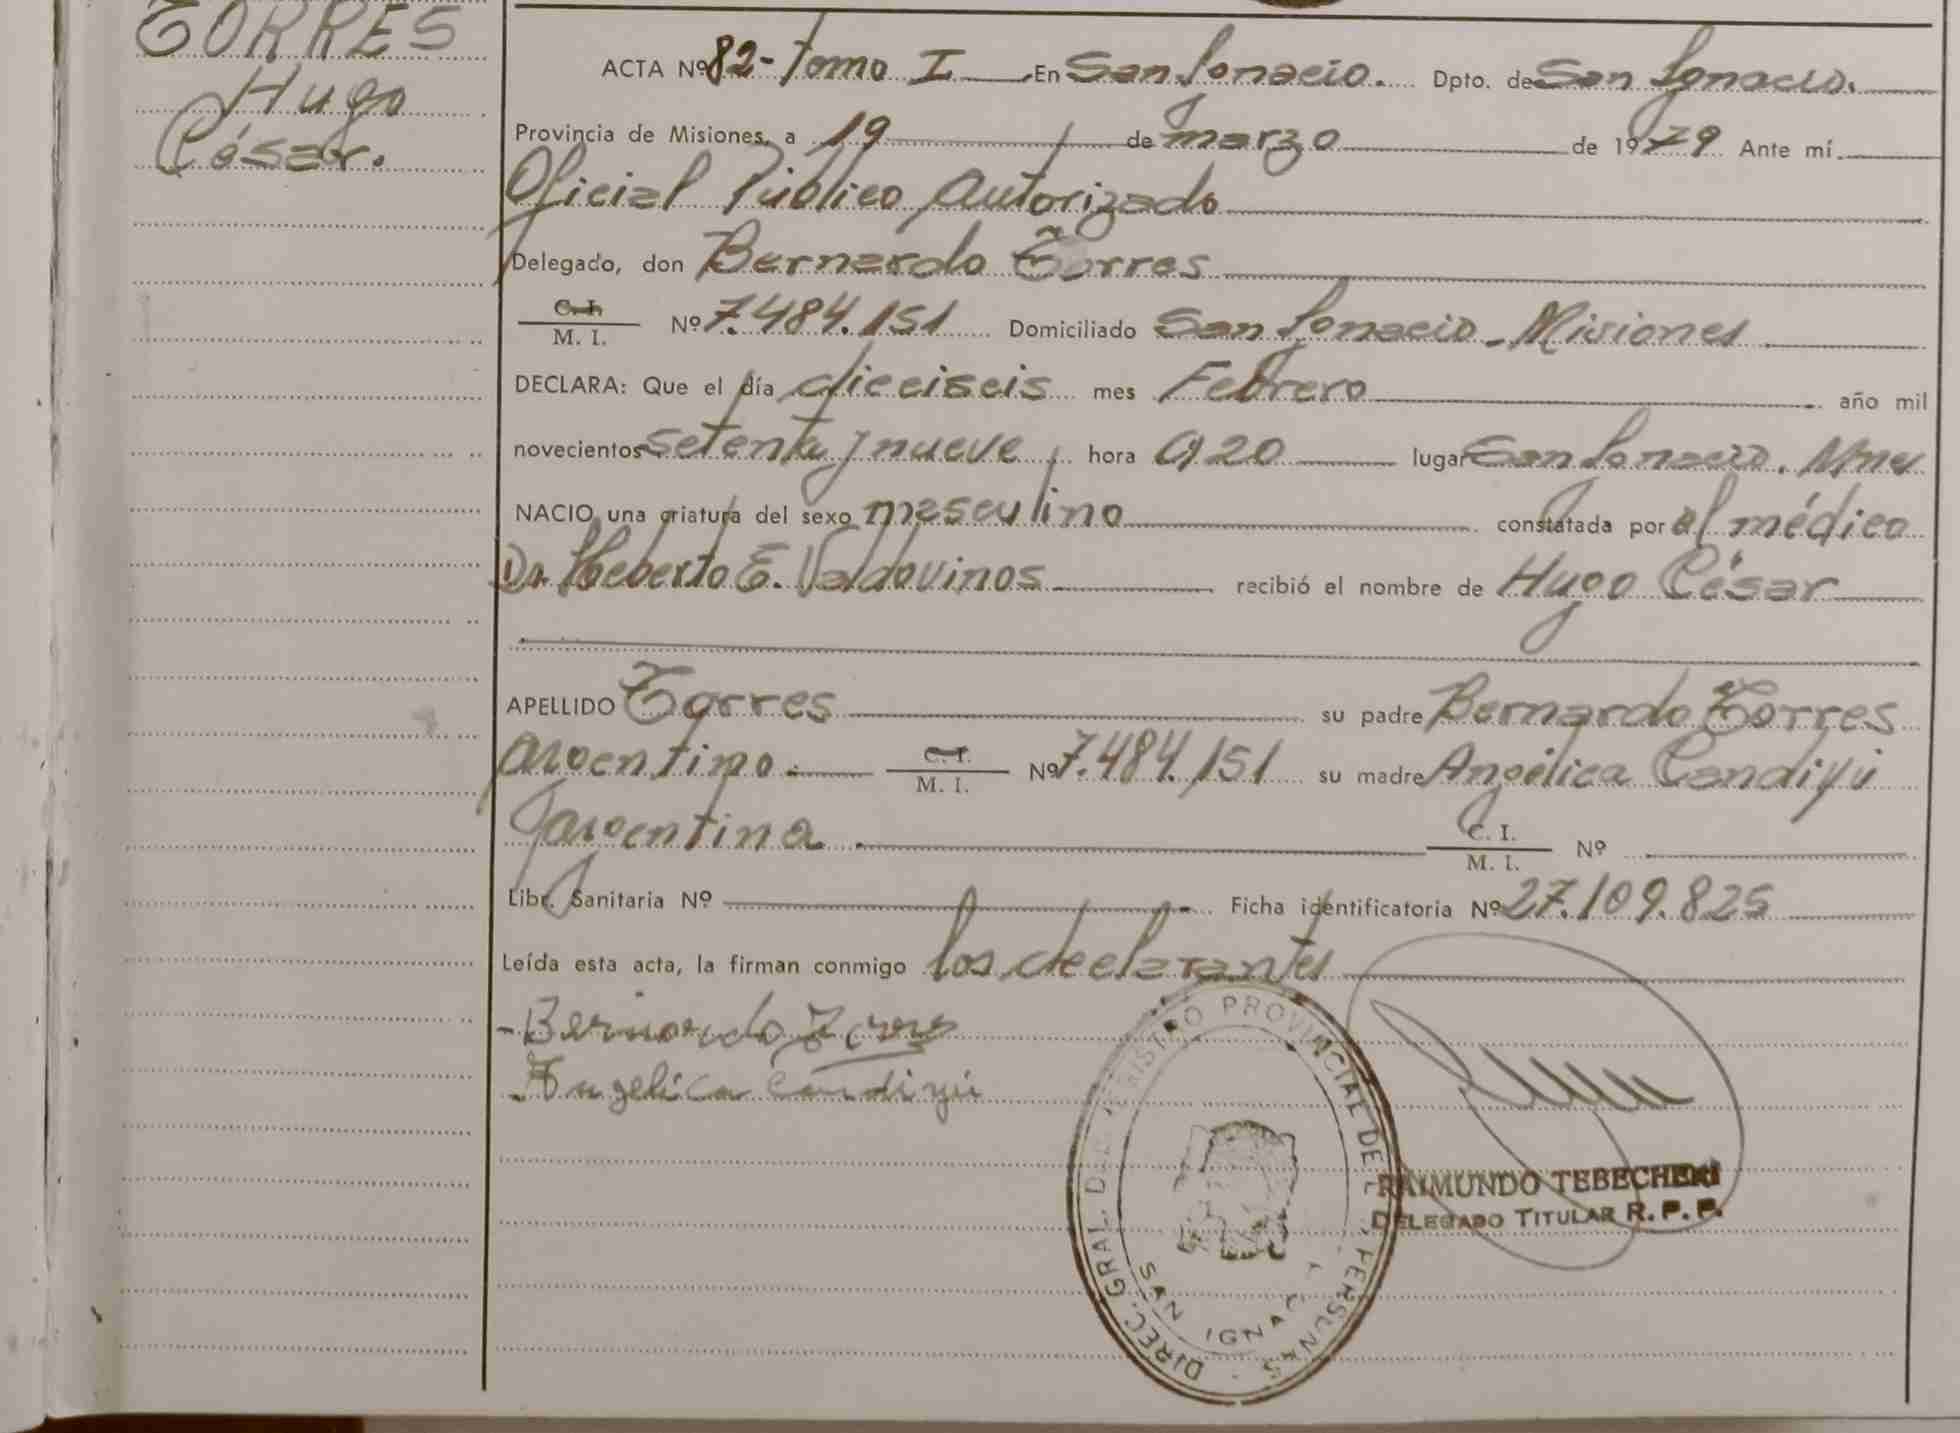 TORRES
Hugo
César.
ACTA Nº 82 - Tomo I En San Ignacio. Dpto. de San Ignacio.
Provincia de Misiones, a 19 de marzo de 1979 Ante mí
Oficial Público Autorizado
Delegado, don Bernardo Torres
C. I.
M. I. Nº 7.484.151 Domiciliado San Ignacio - Misiones
DECLARA: Que el día dieciseis mes Febrero año mil
novecientos setenta y nueve hora 0,20 lugar San Ignacio. Mnes
NACIO una criatura del sexo masculino constatada por el médico
Dr. Heberto E. Valdovinos recibió el nombre de Hugo César
APELLIDO Torres su padre Bernardo Torres
argentino. C. I. M. I. Nº 7.484.151 su madre Angélica Candiyú
argentina. C. I. M. I. Nº
Libr. Sanitaria Nº Ficha identificatoria Nº 27.109.825
Leída esta acta, la firman conmigo los declarantes
- Bernardo Torres
- Angelica Candiyú
DIREC. GRAL. DEL REGISTRO PROVINCIAL DE L PERSONAS
SAN IGNACI
RAIMUNDO TEBECHERI
DELEGADO TITULAR R. P. P.